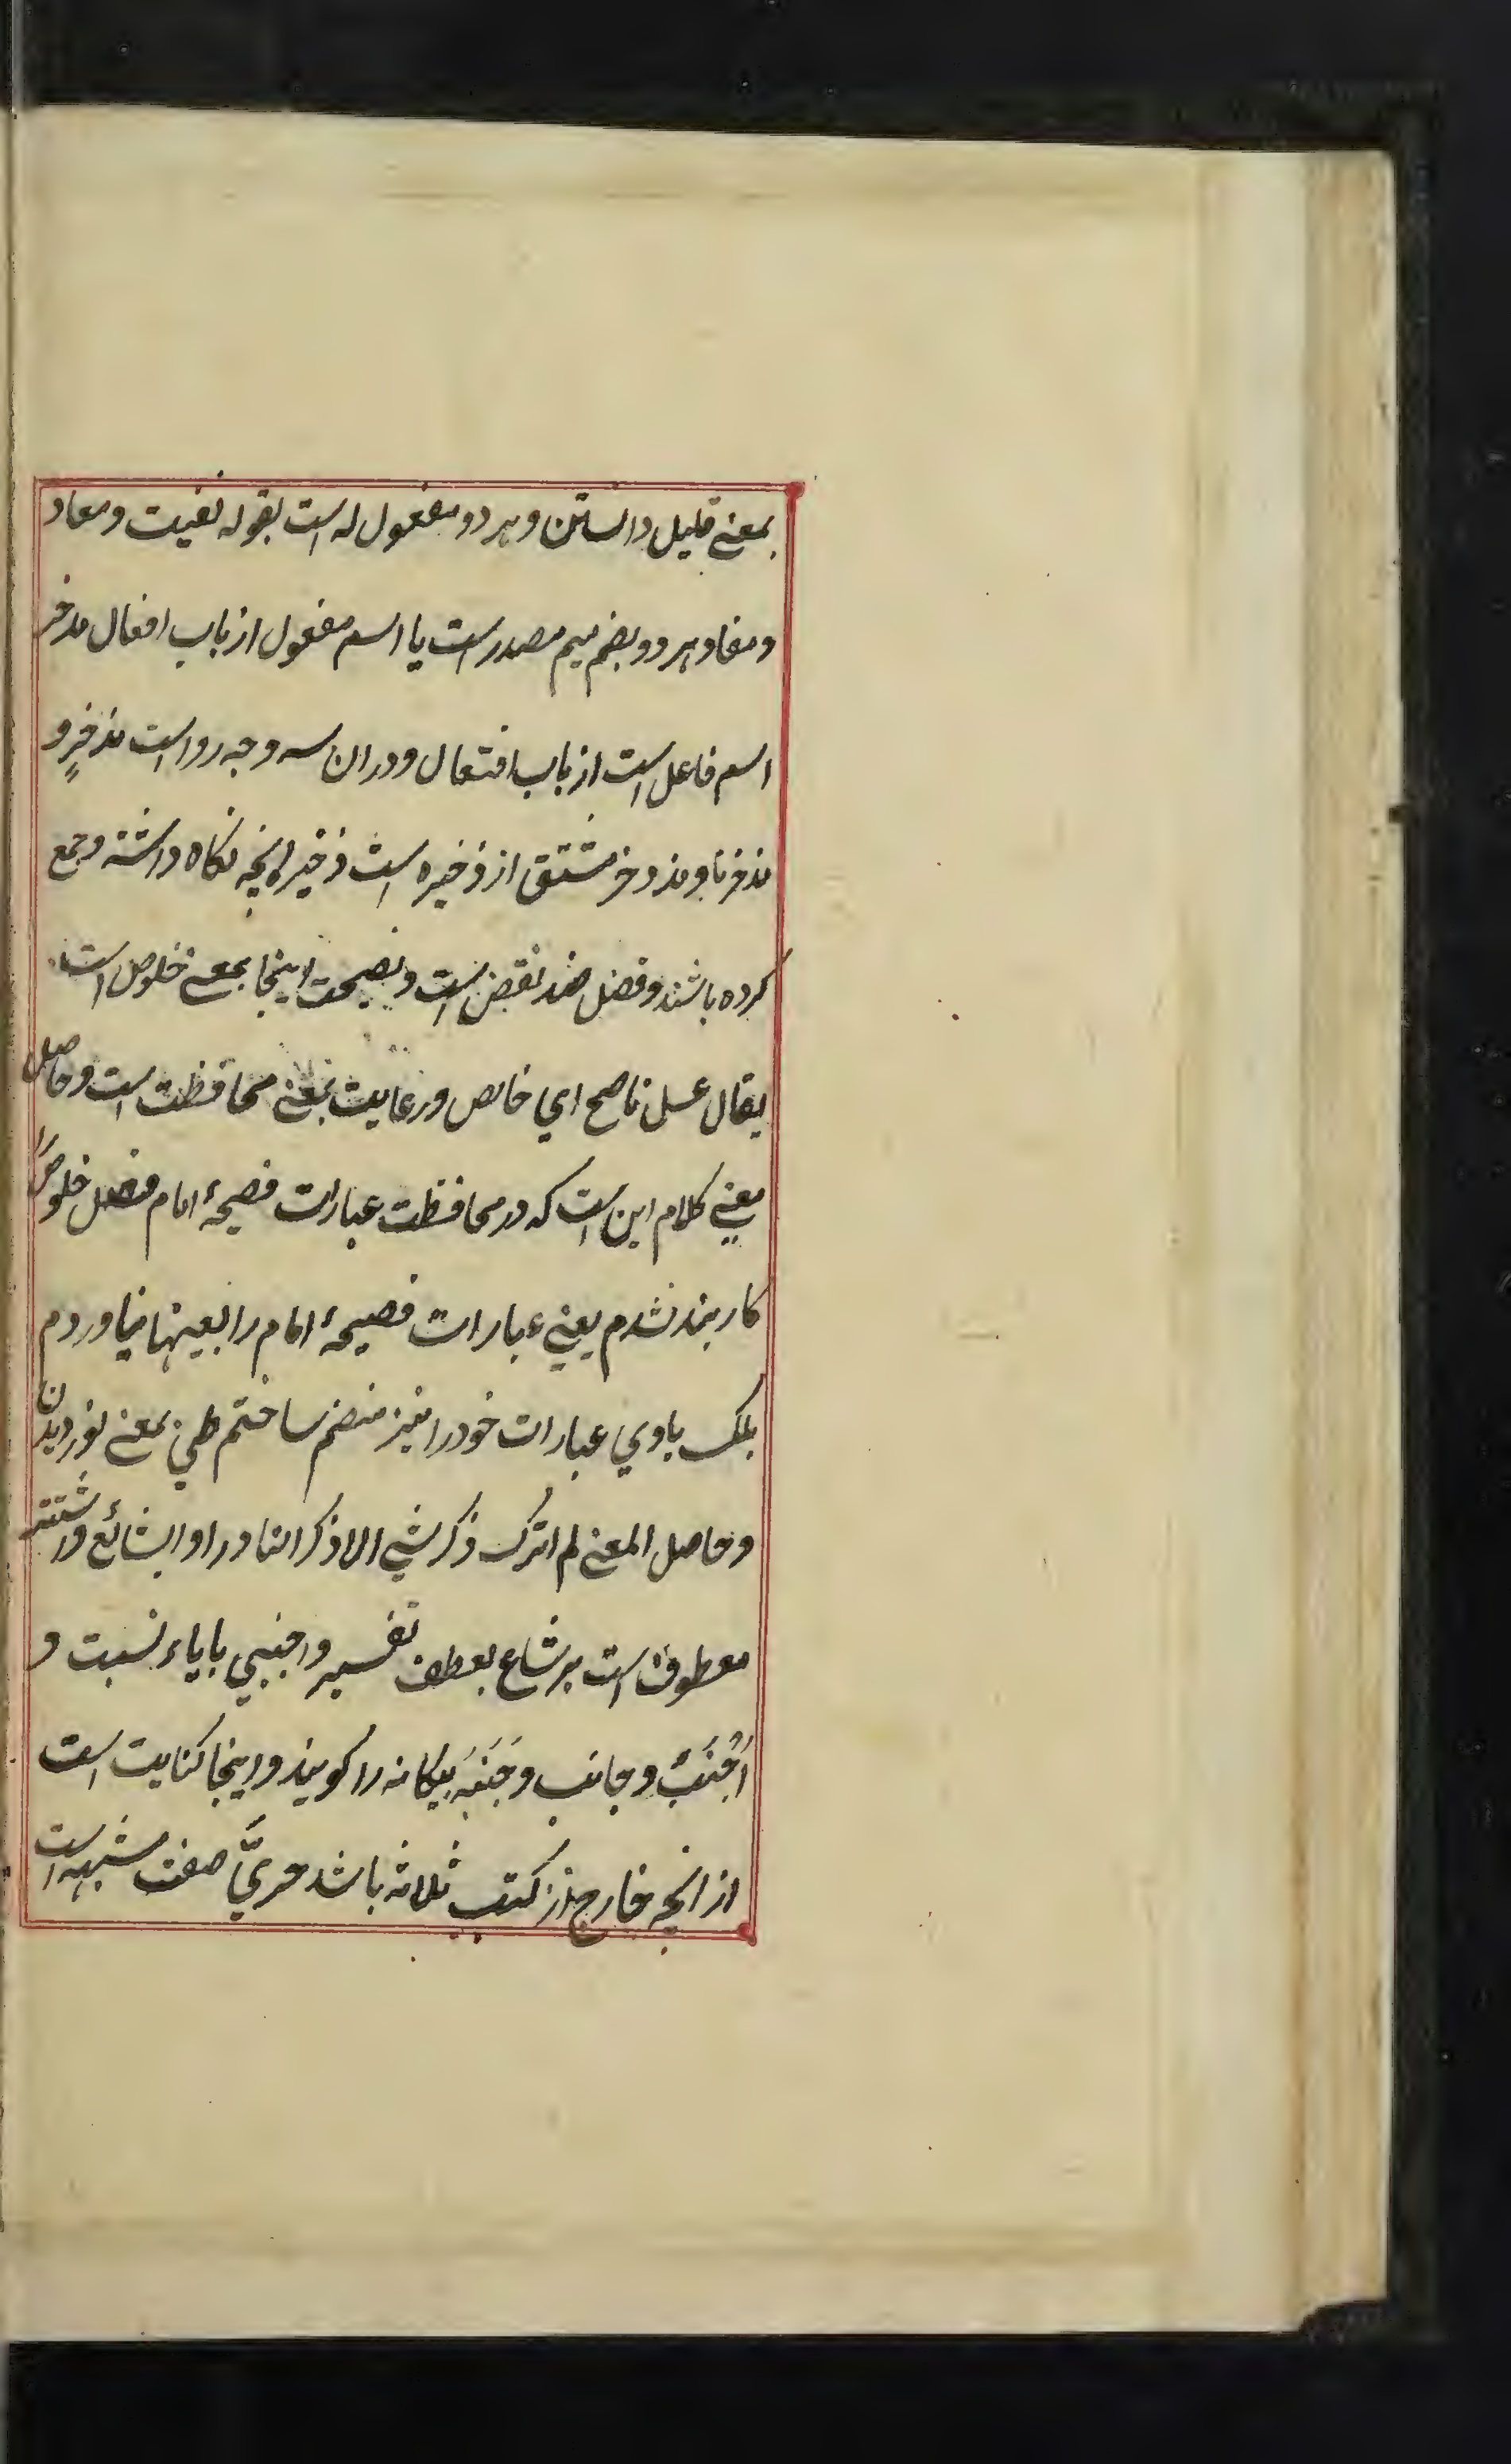 بمعنے قلیل دانستن و هر دو مفعول له است بقوله نفیت و معاد
و مفاد هر دو بضم میم مصدر است یا اسم مفعول از باب افعال مدخر
اسم فاعل است از باب افتعال و در ان سه وجه رواست مذخرٍ و
مذخرنا و مذدخر مشتق از ذخیره است ذخیره انچه نکاه داشته و جمع
کرده باشند و فضل ضد نقص است و نصیحت اینجا بمعنے خلوص است
یقال عسل ناصح اي خالص و رعایت بمعنے محافظت است و حاصل
معنے کلام این است که در محافظت عبارات فصیحهٔ امام فضل خلوصرا
کاربند نشدم یعنے عبارات فصیحهٔ امام را بعینها نیاوردم
بلکه باوي عبارات خود را نیز منضم ساختم طي بمعنے نوردیدن
و حاصل المعنے لم اترک ذکر شي الا ذکر النادر او الشائع و اشتهر
معطوف است بر شاع بعطف تفسیر و اجنبي با یاء نسبت و
اَجْنَبُ و جانب و جَنَبَه بیکانه را کویند و اینجا کنایت است
از انچه خارج از کتب ثلاثه باشد حريَّ صفت مشبهه است